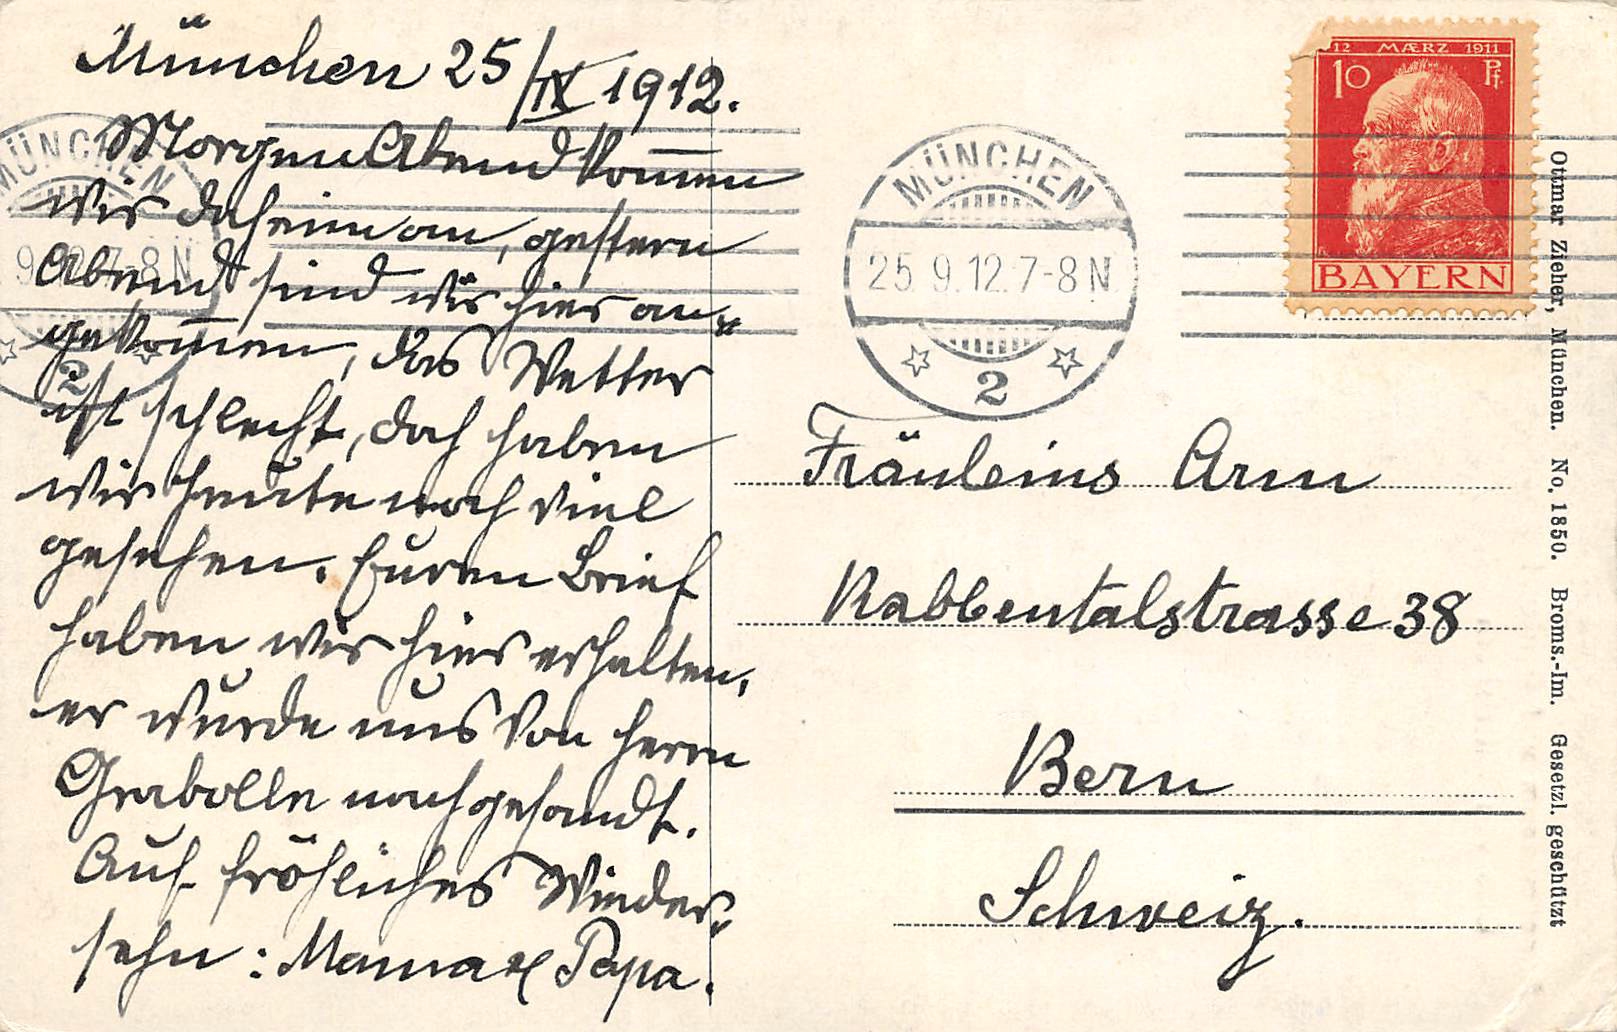 München 25/IX 1912.
Morgen Abend kom̅en
wir daheim an, gestern
Abend sind wir hier an=
gekom̅en, das Wetter
ist schlecht, doch haben
wir heute noch viel
gesehen. Euren Brief
haben wir hier erhalten,
er wurde uns von Herrn
Grabolle nachgesandt.
Auf fröhliches Wieder=
sehn: Mama & Papa.
MÜNCHEN
9.12.7-8 N
2
MÜNCHEN
25.9.12.7-8 N.
2
12 MÆRZ 1911
10 Pf.
BAYERN
Fräuleins Arm
Rabbentalstrasse 38
Bern
Schweiz.
Ottmar Zieher, München. No. 1850. Broms.-Im. Gesetzl. geschützt